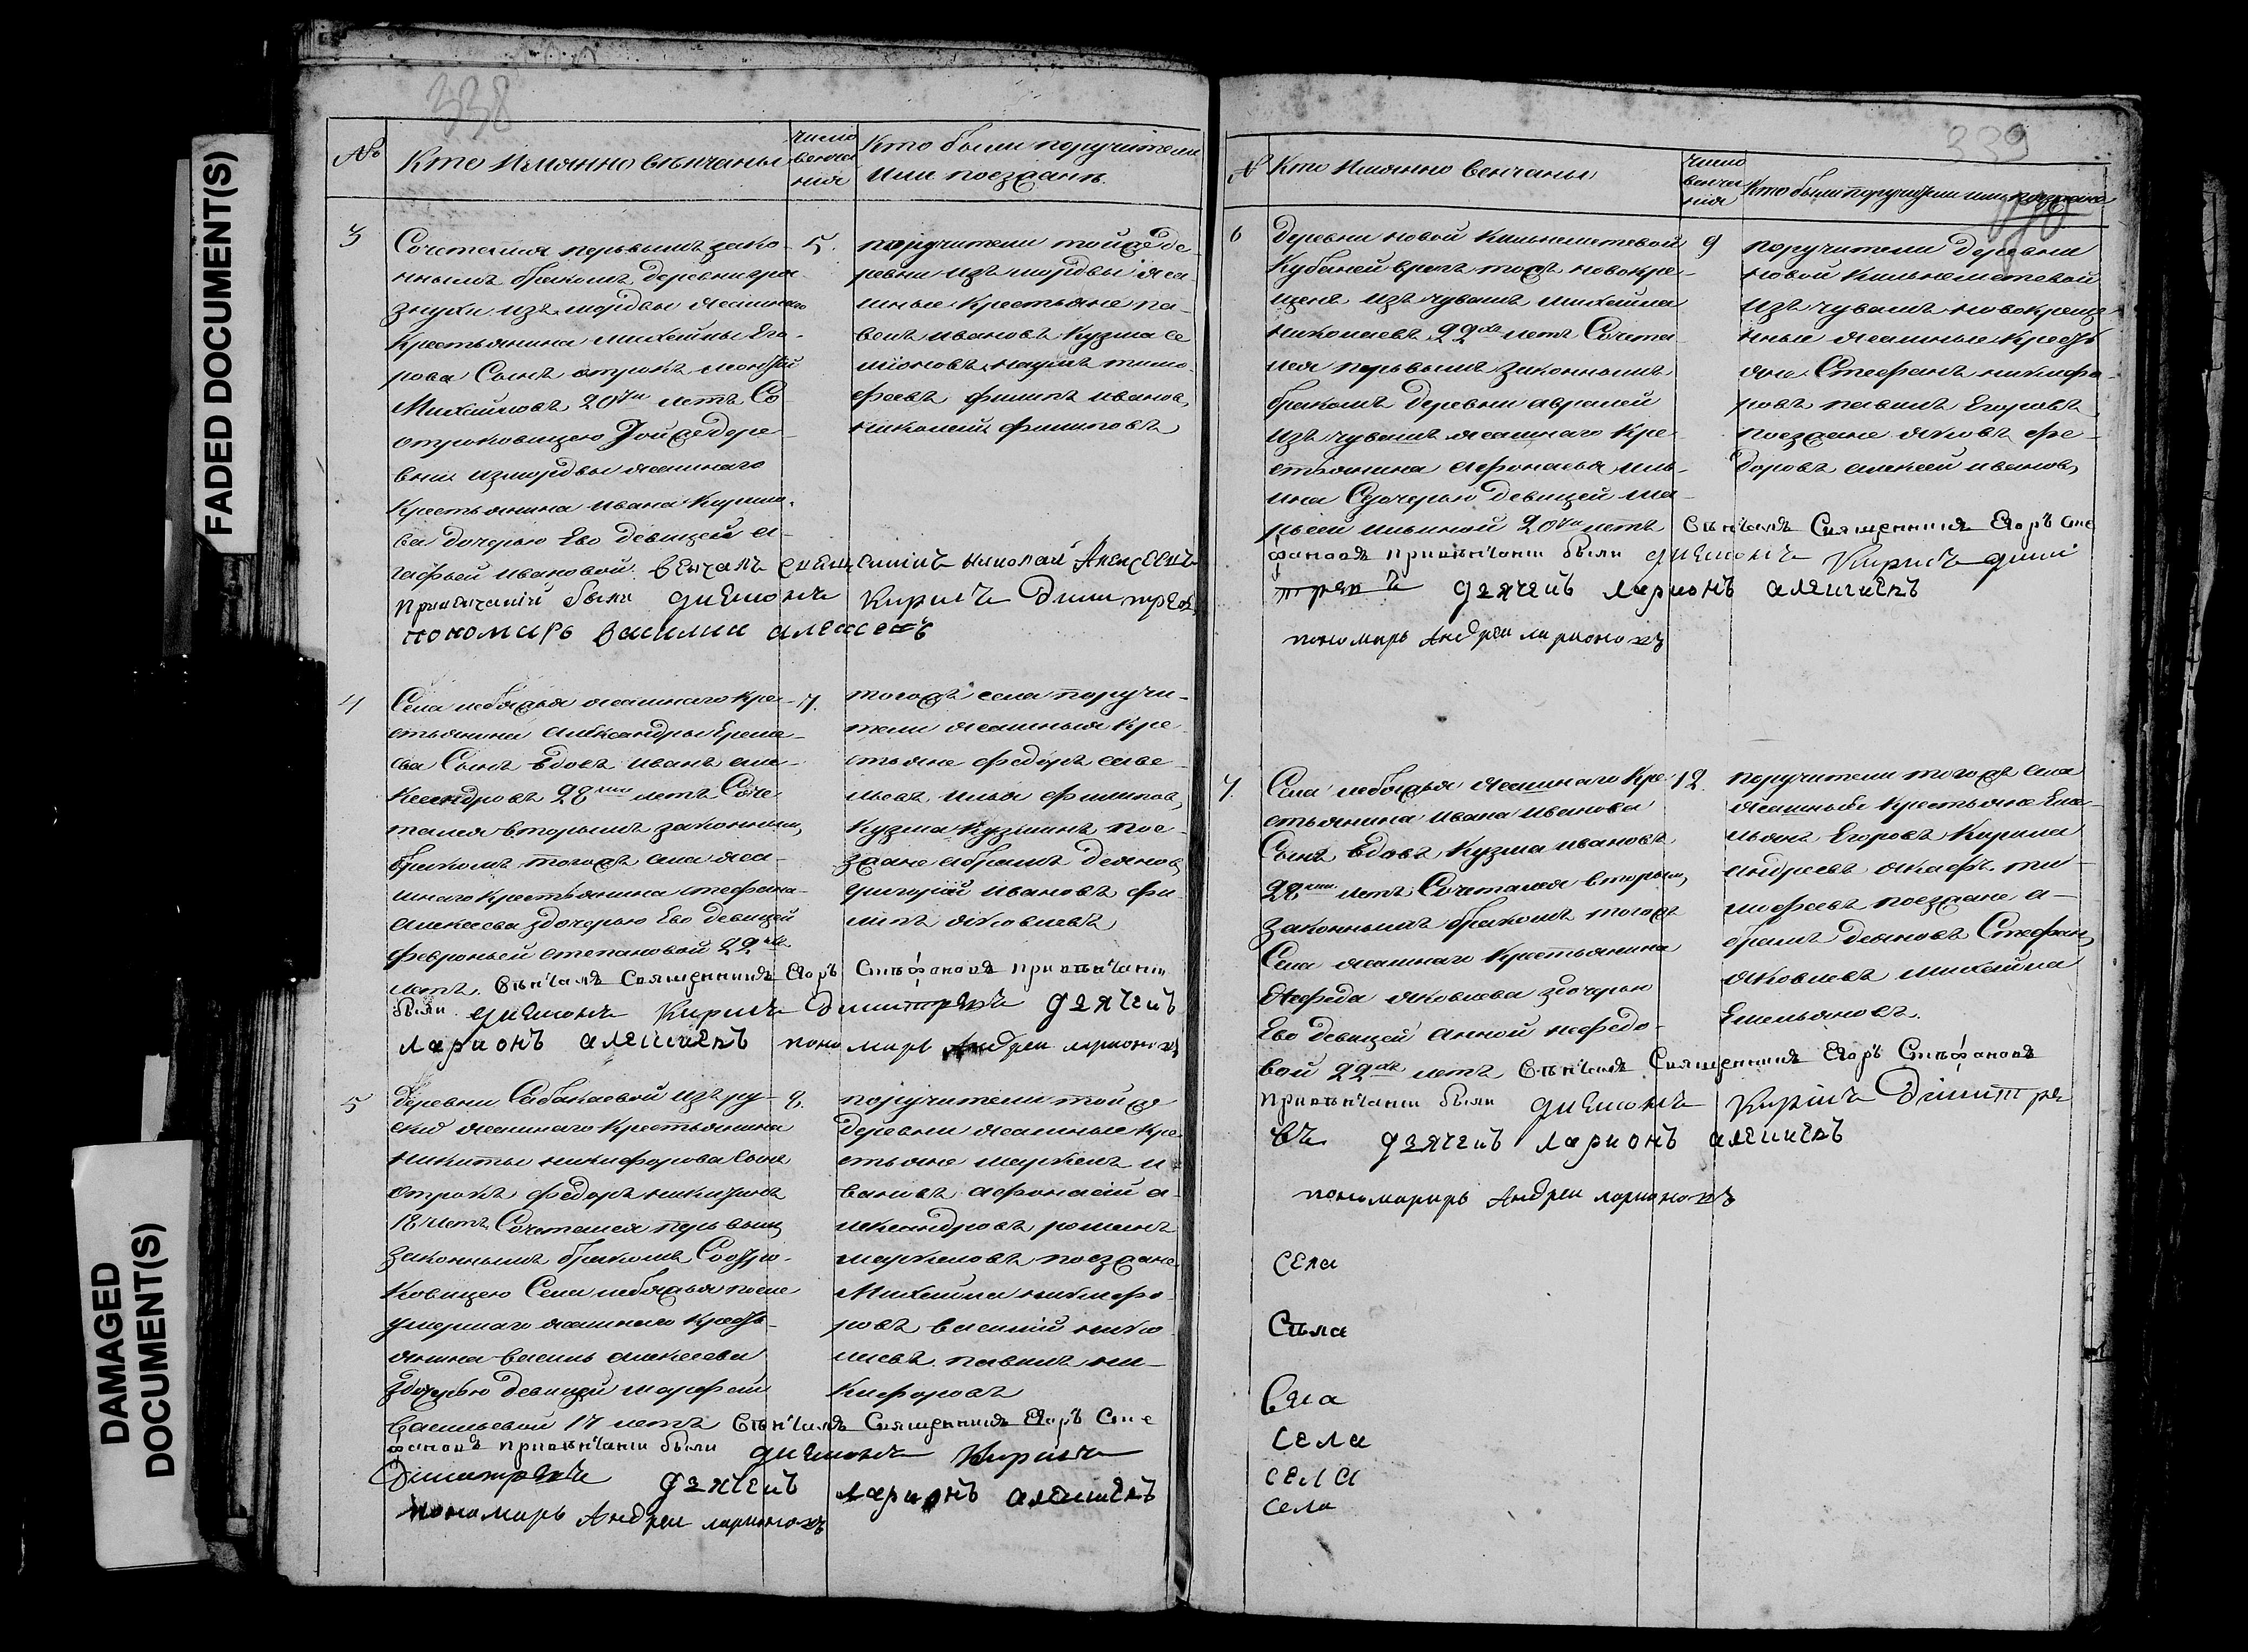 FADED DOCUMENT(S)
DAMAGED
DOCUMENT(S)
338
№
Кто Имянно венчаны
число
венча
ния
Кто были поручители
или поезжанѣ
3
Сочетания первымъ зако-
ннымъ бракомъ деревни гря-
знухи изъ мордвы ясашнаго
крестьянина михайлы Его-
рова Сынъ отрокъ
Михайловъ 20ти летъ Со
отроковицею Той же дере-
вни измордвы ясашнаго
Крестьянина ивана Кирило-
ва дочерью Ево девицей а-
гафьей ивановой венчалъ николай Алексеевъ
При венчании были диаконъ Кирилъ Димитреевъ
пономарь василии алексеевъ
5.
поручители той же де-
ревни изъ мордвы яса-
шные крестьяне па-
велъ ивановъ Кузма се
мионовъ наумъ тимо-
феевъ филипъ ивановъ
николай филиповъ
4
Села лебяжья ясашнаго кре-
стьянина александры Ереме-
ева Сынъ вдовъ иванъ але-
ксандровъ 28ми летъ Соче
тался вторымъ законнымъ
бракомъ тогожъ села яса-
шнаго крестьянина стефана
алексеева здочерью Ево девицей
февроньей степановой 22хъ
летъ. Венчалъ Священникъ Егоръ Стефановъ при венчании
были диаконъ Кирилъ Димитреевъ дьячекъ
ларионъ алексеевъ пономарь Андреи ларионовъ
7.
тогожъ села поручи-
тели ясашныя кре
стьяне федоръ саве-
льевъ илья филиповъ
кузма кузминъ пое-
зжане абрамъ демновъ
григорий ивановъ фи-
липъ яковлевъ
5
деревни Сабакаевой изъ ру-
ских ясашнаго крестьянина
никиты никифорова сынъ
отрокъ федоръ никитинъ
18 летъ Сочетался первымъ
законнымъ бракомъ Соотро-
ковицею Села лебяжья после
умершаго ясашнаго кресть-
янина василья алексеева
здочерью девицей марфой
васильевой 17 летъ Венчалъ Священникъ Егоръ Сте
фановъ при венчании были диаконъ Кирилъ
Димитреевъ дьячекъ ларионъ алексеевъ
пономарь Андреи ларионовъ
8.
поручители той же
деревни ясашные кре
стьяне маркелъ и
вановъ афонасий а-
лександровъ романъ
маркеловъ поезжане
Михайла никифо
ровъ василий нико
лаевъ павелъ ни-
кифоровъ
339
№
Кто Имянно венчаны
число
венча
ния
Кто были поручители или поезжана
6
Деревни новой Кильметевой
Кубаней врагъ тожъ новокре-
щенъ изъ чувашъ михайла
николаевъ 22хъ летъ Сочета
лся первымъ законнымъ
бракомъ деревни авралей
изъ чувашъ ясашнаго кре-
стьянина афонасья иль-
ина Сдочерью девицей ма-
рьей ильиной 20ти летъ Венчалъ Священникъ Егоръ Сте
фановъ при венчании были диаконъ Кирилъ дими
треевъ дьячекъ ларионъ алексеевъ
пономарь Андреи ларионовъ
9
поручители деревни
новой Кильметевой
изъ чувашъ новокреще
нные ясашные кресть
яне Стефанъ никифо-
ровъ павелъ Егоровъ
поезжане яковъ фе-
доровъ алексей ивановъ
7.
Села лебяжья ясашнаго кре-
стьянина ивана иванова
Сынъ вдовъ Кузма ивановъ
28ми летъ Сочетался вторымъ
законнымъ бракомъ тогожъ
Села ясашнаго крестьянина
нефеда яковлева здочерью
Ево девицей анной нефедо-
вой 22хъ летъ Венчалъ Священникъ Егоръ Стефановъ
При венчании были диаконъ Кирилъ Димитрее
въ дьячекъ ларионъ алексеевъ
пономарирь Андреи ларионовъ
12.
поручители тогожъ села
ясашный крестьяне Еме-
льянъ Егоровъ Кирила
андреевъ ти-
мофеевъ поезжане а-
брамъ демновъ Стефанъ
яковлевъ михайла
Емельяновъ.
села
Села
Села
села
села
села